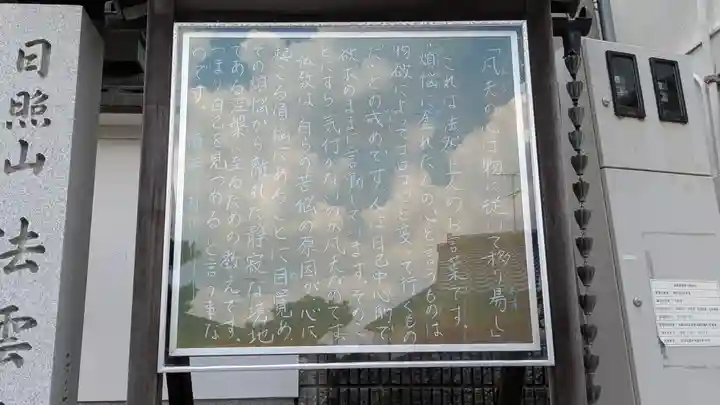 「凡夫の心は物に従いて移り易し」
これは法然上人のお言葉です。
煩悩に塗れた人の心と言うものは
物欲によってコロコロと変って行くもの
だとの戒めです。人は自己中心的で
欲求のままに言動してします。そのこ
とにすら気付かないのが凡夫なのです
仏教は、自らの苦悩の原因が心に
起こる煩悩にあることに目覚め、
その煩悩から離れた静寂な境地
である涅槃に至るための教えです。
つまり「自己を見つめる」と言う事な
のです。
日照山 法雲